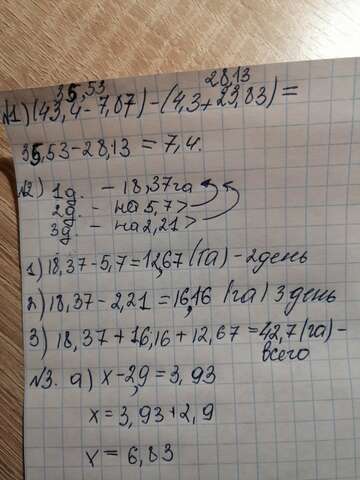 35,53 28,13
№1) (43,4-7,87)-(4,3+23,83)=
35,53-28,13=7,4.
№2) 1д. - 18,37га
2д. - на 5,7>
3д. - на 2,21>
1) 18,37-5,7=12,67(га)-2день
2) 18,37-2,21=16,16 (га) 3день
3) 18,37+16,16+12,67=42,7(га)-
всего
№3. а) x-2,9=3,93
x=3,93+2,9
x=6,83